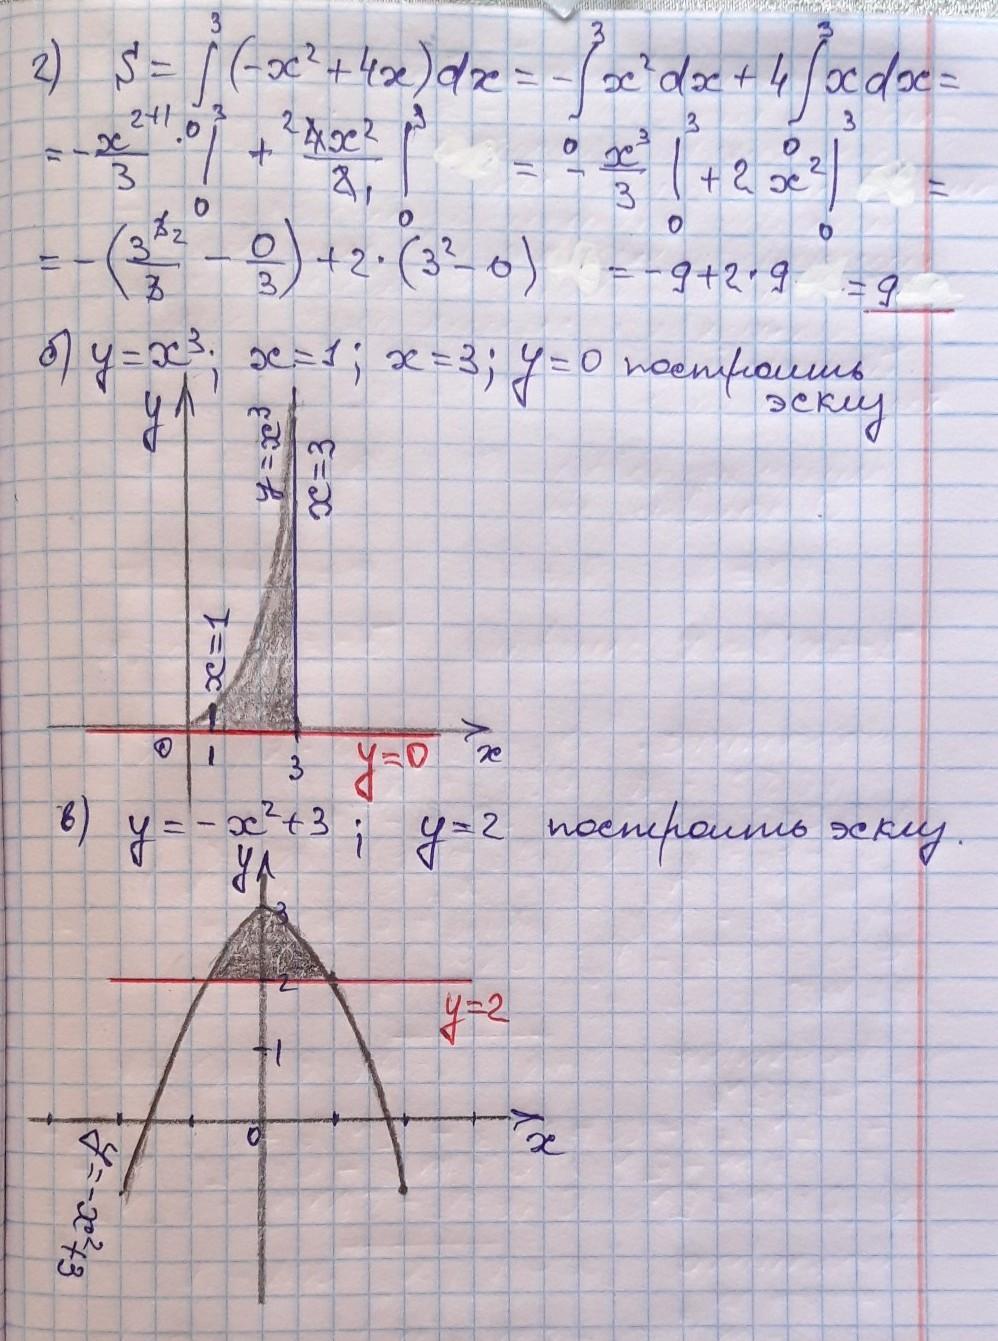 2) S = ∫₀³ (-x² + 4x) dx = -∫₀³ x² dx + 4∫₀³ x dx =
= - x²⁺¹/3 |₀³ + 4x²/2 |₀³ = - x³/3 |₀³ + 2 x² |₀³ =
= -(3³/3 - 0/3) + 2·(3² - 0) = -9 + 2·9 = 9
б) y = x³; x = 1; x = 3; y = 0 построить
эскиз
y
y = x³
x = 3
x = 1
0 1 3 y = 0 x
в) y = -x² + 3; y = 2 построить эскиз.
y
3
2
y = 2
1
0 x
y = -x² + 3